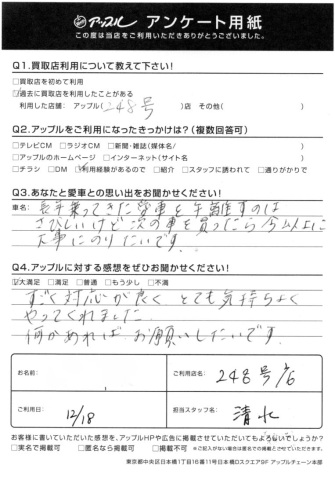 アップル アンケート用紙
この度は当店をご利用いただきありがとうございました。
Q1.買取店利用について教えて下さい!
□買取店を初めて利用
☑過去に買取店を利用したことがある
利用した店舗: アップル( 248号 )店 その他( )
Q2.アップルをご利用になったきっかけは?(複数回答可)
□テレビCM □ラジオCM □新聞・雑誌(媒体名/ )
□アップルのホームページ □インターネット(サイト名 )
□チラシ □DM ☑利用経験があるので □紹介 □スタッフに誘われて □通りがかりで
Q3.あなたと愛車との思い出をお聞かせください!
車名: 長年乗ってきた愛車を手離すのは
さびしいけど次の車を買ったら今以上に
大事にのりたいです。
Q4.アップルに対する感想をぜひお聞かせください!
☑大満足 □満足 □普通 □もう少し □不満
すごく対応が良く とても気持ちよく
やってくれました。
何かあれば お願いしたいです。
お名前:
ご利用店名: 248号
ご利用日: 12/18
担当スタッフ名: 清水
お客様に書いていただいた感想を、アップルHPや広告に掲載させていただいてもよろしいでしょうか?
□実名で掲載可 □匿名なら掲載可 □不可 ※ご記入がない場合は、匿名で掲載させていただく場合がございます。
東京都中央区日本橋1丁目16番11号日本橋Dスクエア9F アップルチェーン本部